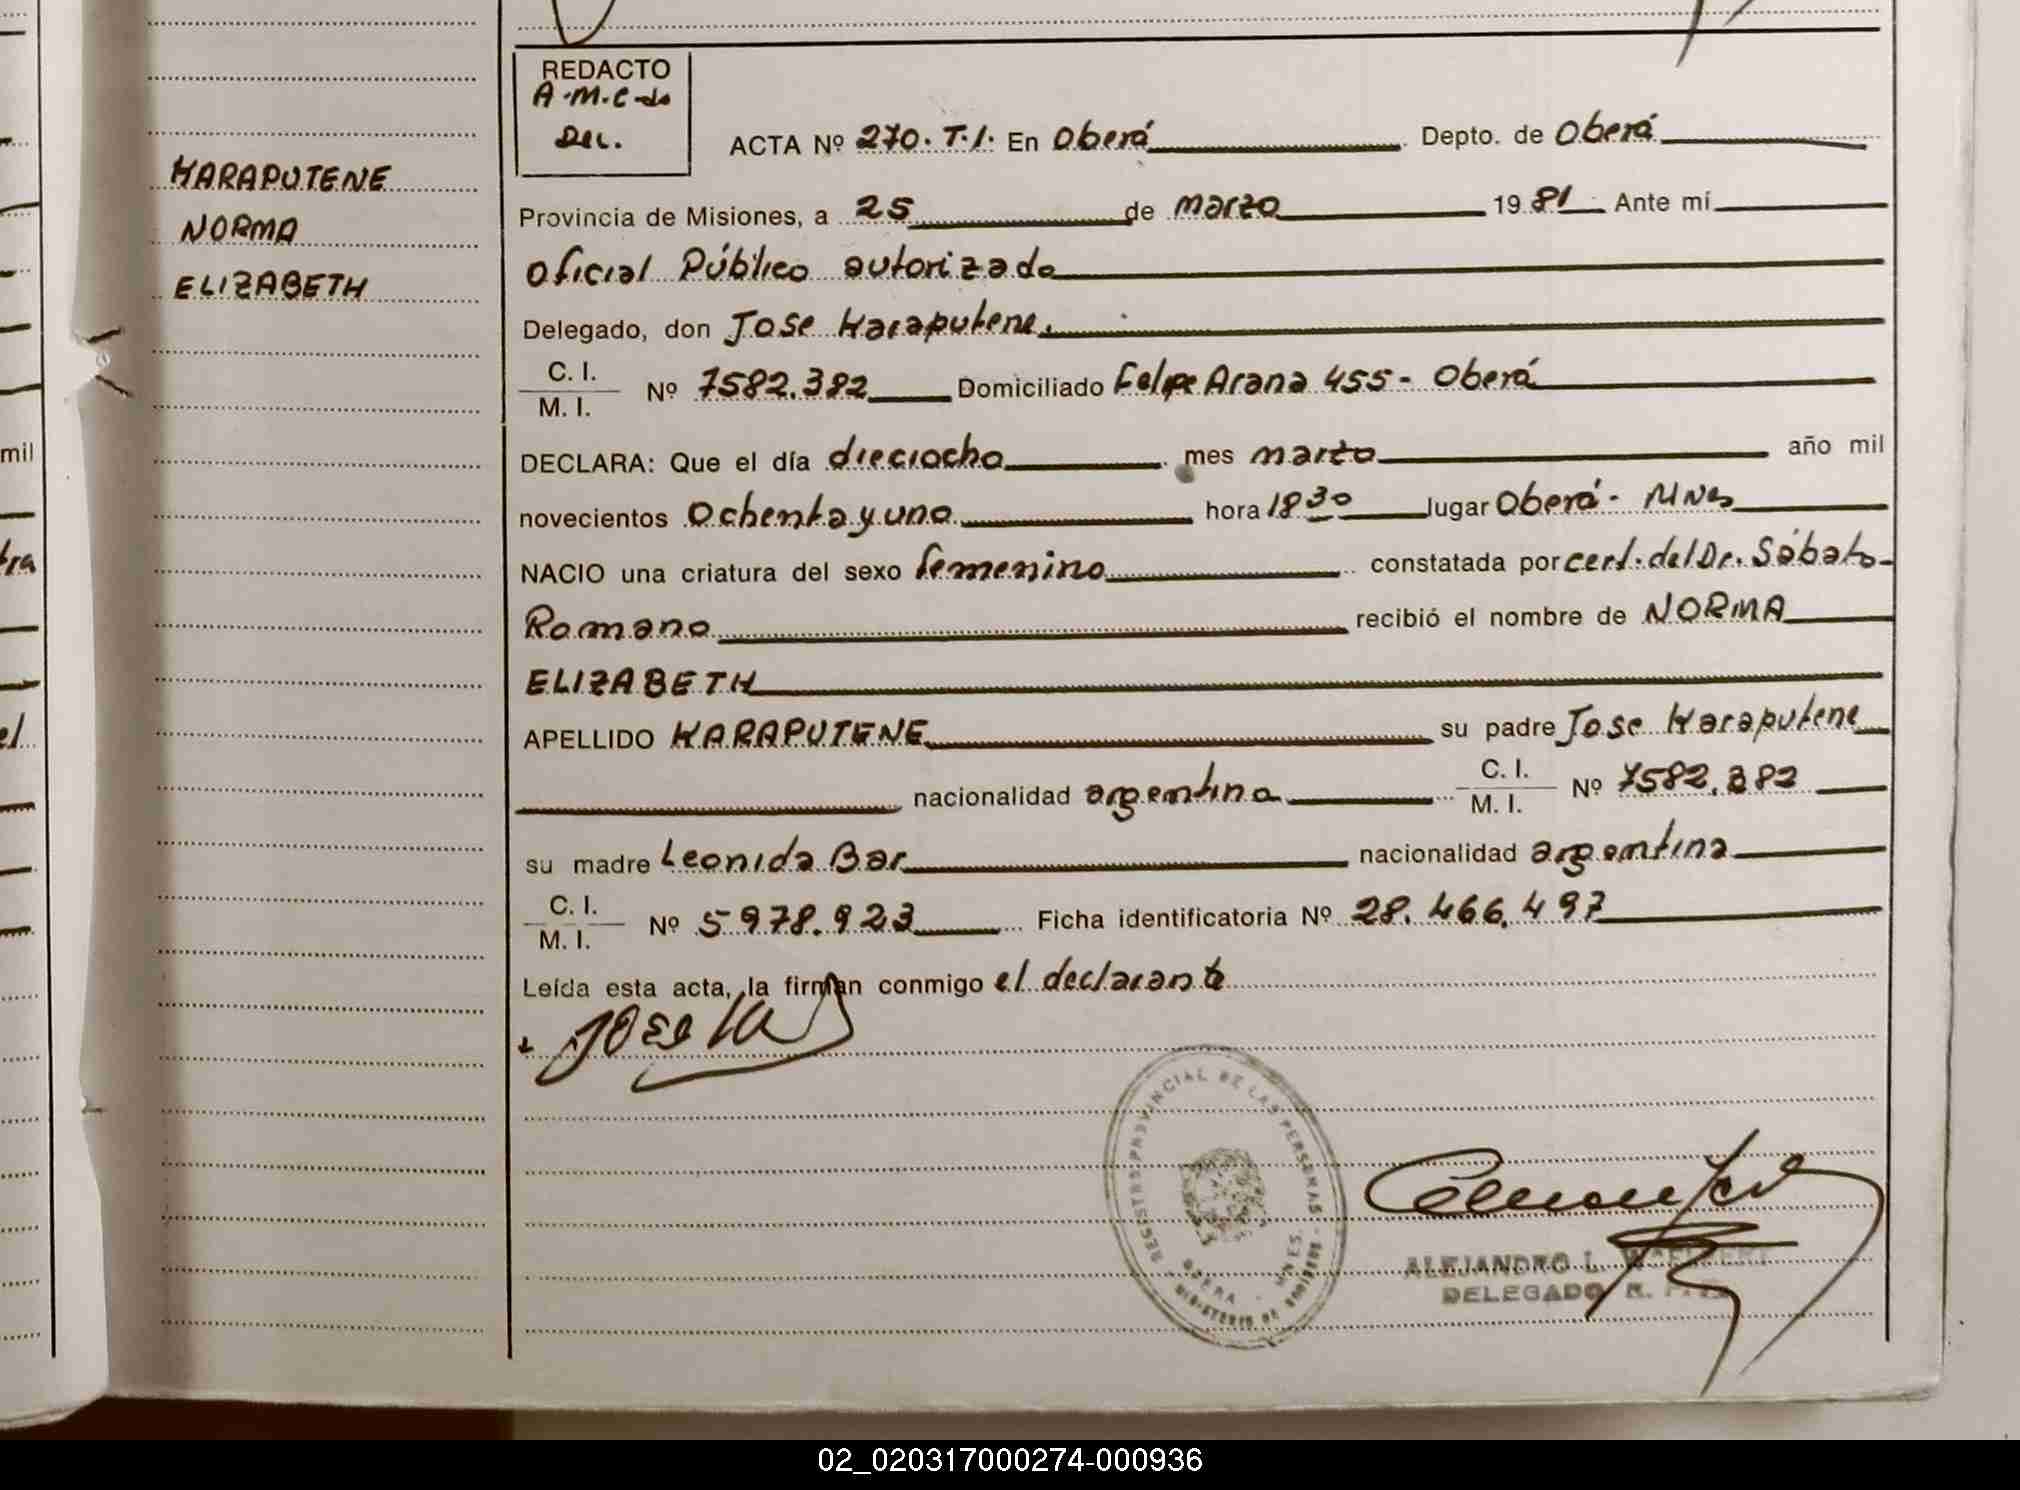 REDACTO
A.M.C-do
Del.
KARAPUTENE
NORMA
ELIZABETH
ACTA Nº 270.T.I. En Oberá Depto. de Oberá
Provincia de Misiones, a 25 de marzo 1981 Ante mí
Oficial Público autorizado
Delegado, don Jose Karaputene.
C. I.
M. I. Nº 7582.382 Domiciliado Felipe Arana 455- Oberá
DECLARA: Que el día dieciocho mes marzo año mil
novecientos Ochenta y uno hora 18 30 lugar Oberá- Mnes
NACIO una criatura del sexo femenino constatada por cert. del Dr. Sábato-
Romano recibió el nombre de NORMA
ELIZABETH
APELLIDO KARAPUTENE su padre Jose Karaputene
nacionalidad argentina C. I.
M. I. Nº 7582.382
su madre Leonida Bar nacionalidad argentina
C. I.
M. I. Nº 5978.923 Ficha identificatoria Nº 28.466.497
Leída esta acta, la firman conmigo el declarante
Jose Ka
REGISTRO PROVINCIAL DE LAS PERSONAS
OBERA - MNES.
MINISTERIO DE GOBIERNO
ALEJANDRO L.
DELEGADO R.
mil
tra
el
02_020317000274-000936